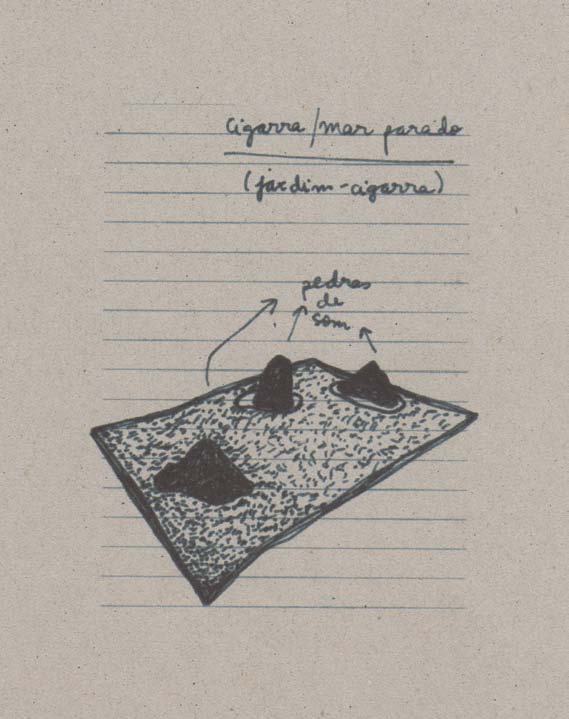 cigarra/mar parado
(jardim-cigarra)
pedras
de
som